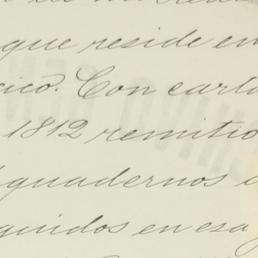 que reside en
cico. Con cart
1812 remitio
quadernos
guidos en esa